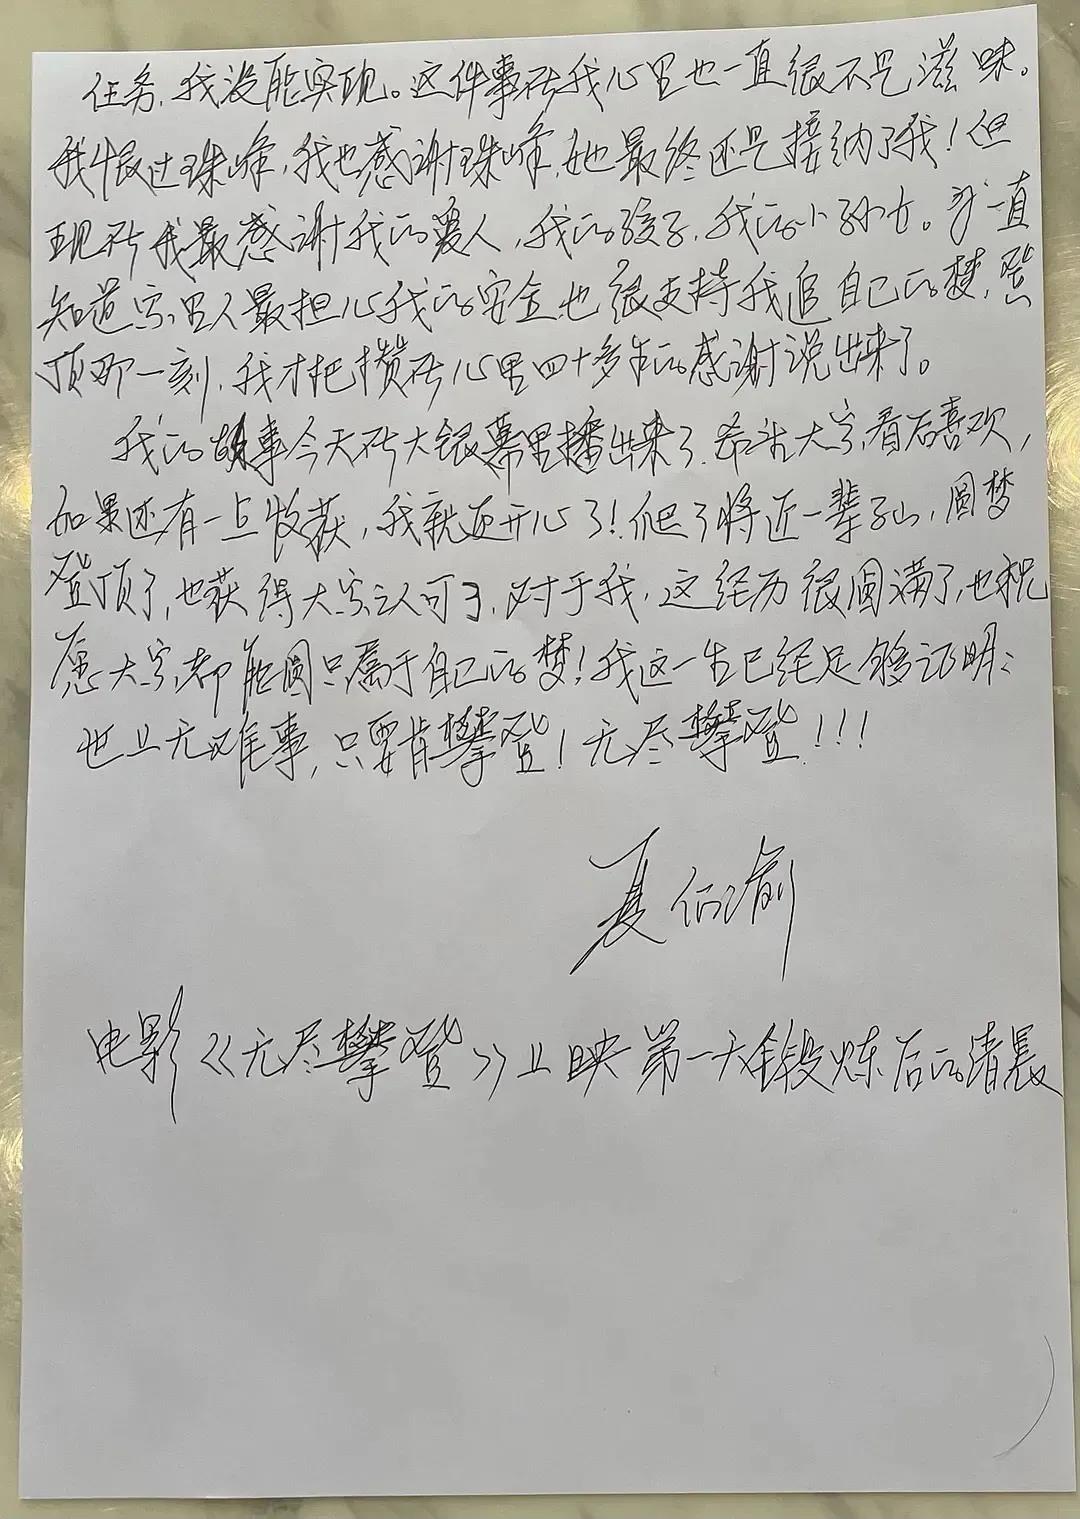 任务,我没能实现。这件事在我心里也一直很不是滋味。
我恨过珠峰,我也感谢珠峰,她最终还是接纳了我!但
现在我最感谢我的爱人,我的孩子,我的小孙女。我一直
知道家里人最担心我的安全,也很支持我追自己的梦,登
顶那一刻,我才把攒在心里四十多年的感谢说出来了。
我的故事今天在大银幕里播出来了,希望大家看后喜欢,
如果还有一点收获,我就更开心了!爬了将近一辈子山,圆梦
登顶了,也获得大家认可了,对于我,这经历很圆满了,也祝
愿大家都能圆只属于自己的梦!我这一生已经足够证明:
世上无难事,只要肯攀登!无尽攀登!!!
夏伯渝
电影《无尽攀登》上映第一天锻炼后的清晨